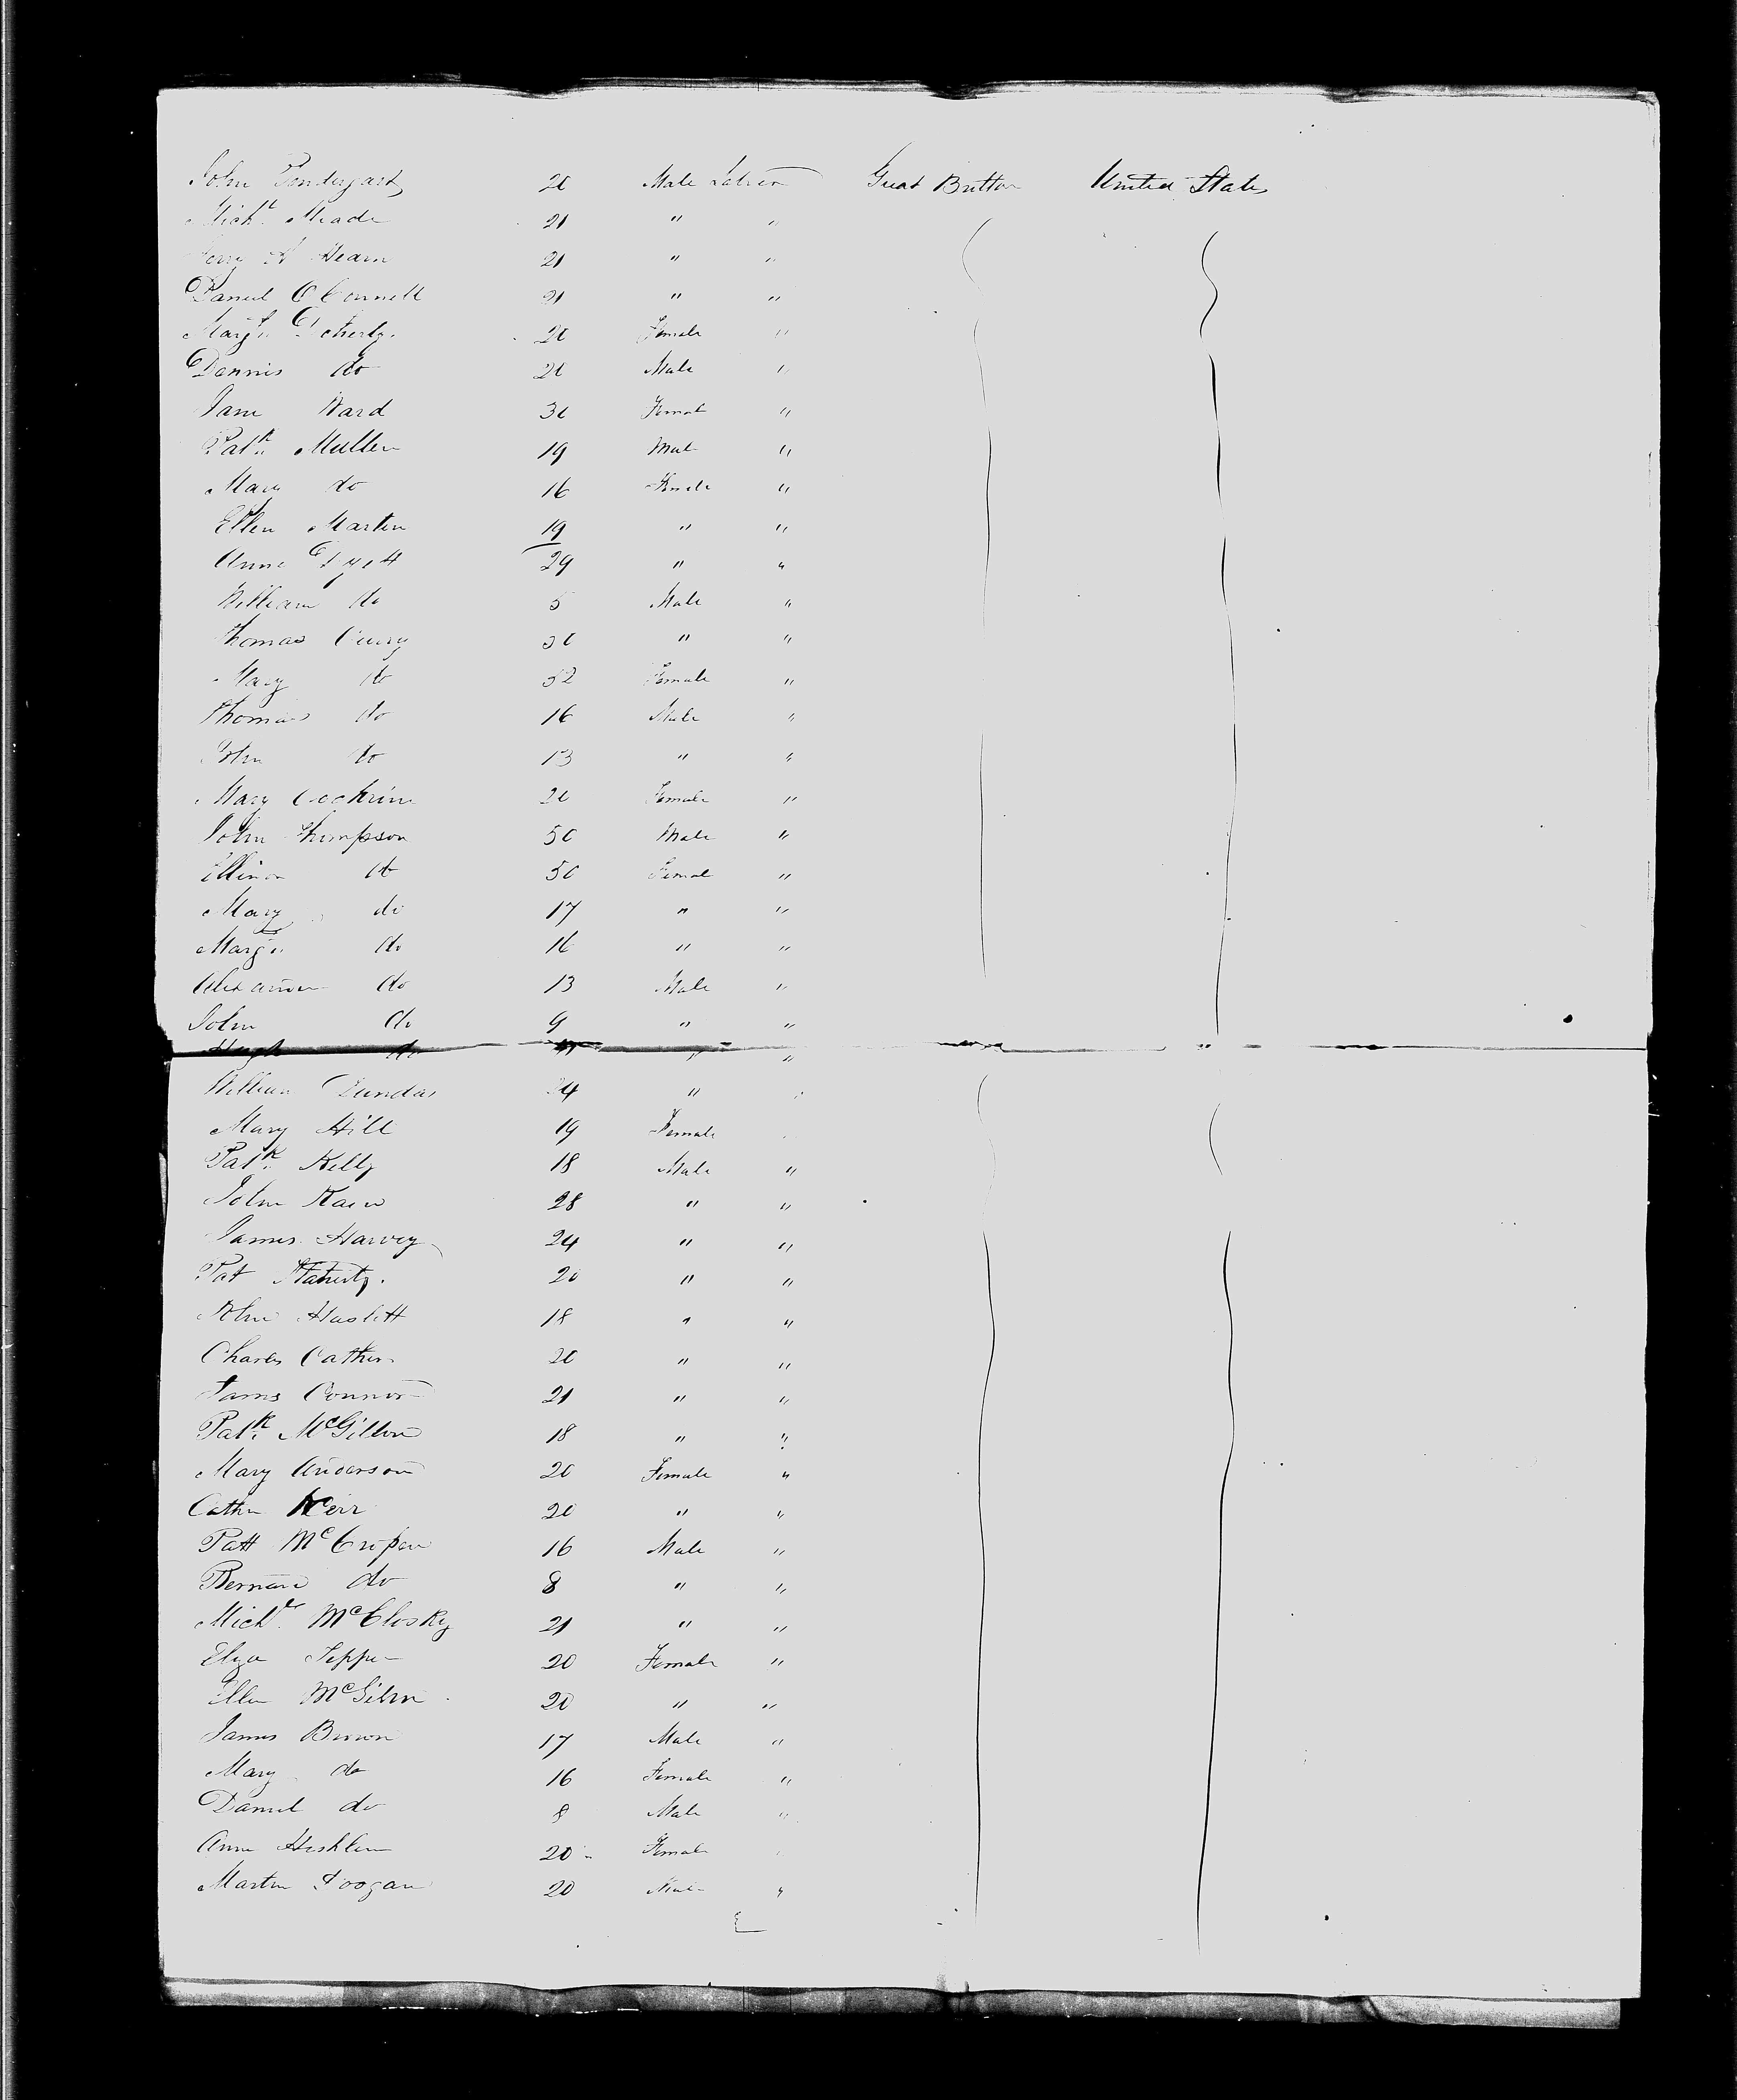 John Pendergast 20 Male Labrer Great Brittan United States
Mich.l Meade 21 " "
Hearn 21 " "
Daniel O Connell 21 " "
Marg.t Doherty. 20 Female "
Dennis do 20 Male "
Jane Ward 30 Femal "
Pat.k Mullen 19 Male "
Mary do 16 Female "
Ellen Martin 19 " "
Anne 29 " "
William do 5 Male "
Thomas 50 " "
Mary do 52 Female "
Thomas do 16 Male "
John do 13 " "
Mary Cochrine 20 Female "
John Thimpson 50 Male "
Ellinor do 50 Femal "
Mary do 17 " "
Marg.t do 16 " "
Alexander do 13 Male "
John do 9 " "
Hugh do " "
William Dundas 24 "
Mary Hill 19 Female
Pat.k Kelly 18 Male "
John Kain 28 " "
James Harvey 24 " "
Pat 20 " "
John Haslett 18 " "
Charles Cathers 20 " "
James Connor 21 " "
Pat.k McGillon 18 " "
Mary Anderson 20 Female "
Cathn Kerr 20 " "
Patt 16 Male "
Bernard do 8 " "
Mich.l McClosky 21 " "
Eliza 20 Female "
Ellen 20 " "
James Brown 17 Male "
Mary do 16 Female "
Daniel do 8 Male "
Ann 20 Female
Martin 20 Male "